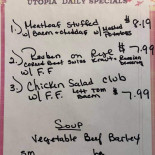 UTOPIA DAILY SPECIALS
1.) Meatloaf Stuffed $8.19
w/ Bacon + cheddar w/ Mashed Potatoes
2.) Reuben on Rye $7.99
Corned Beef Swiss Kraut Russian Dressing
w/ F.F.
3.) Chicken Salad club
w/ F.F. Lett Tom Bacon $7.99
Soup
Vegetable Beef Barley